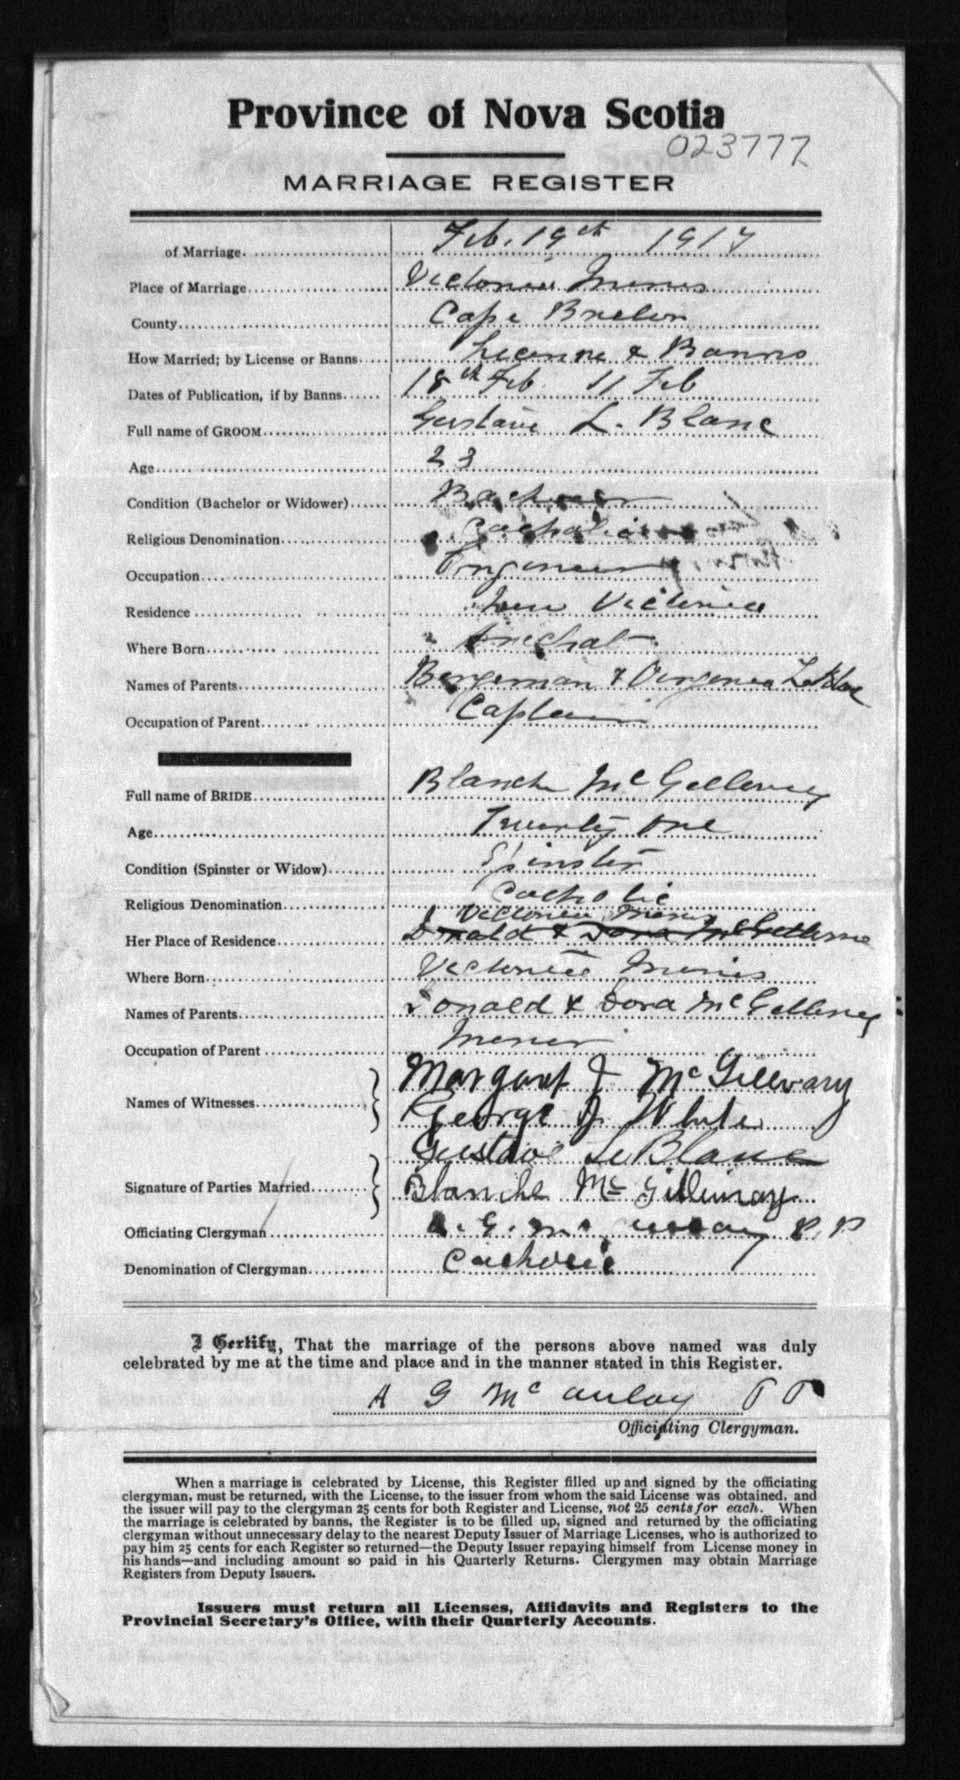 Province of Nova Scotia
023777
MARRIAGE REGISTER
of Marriage Feb. 19th 1917
Place of Marriage Victoria Mines
County Cape Breton
How Married; by License or Banns License & Banns
Dates of Publication, if by Banns 18th Feb 11 Feb
Full name of GROOM Gustave L. Blanc
Age 23
Condition (Bachelor or Widower) Bachelor
Religious Denomination Catholic
Occupation Engineer
Residence New Victoria
Where Born Arichat
Names of Parents Bengeman & Virginea LeBlac
Occupation of Parent Captain
Full name of BRIDE Blanch McGellevey
Age Twenty one
Condition (Spinster or Widow) Spinster
Religious Denomination Catholic
Victoria Mines
Her Place of Residence Donald & Dora
Where Born Victoria Mines
Names of Parents Donald & Dora McGellevey
Occupation of Parent Miner
Margaret J McGillvary
Names of Witnesses George J White
Gustave LeBlanc
Signature of Parties Married Blanche McGillivray
Officiating Clergyman A. G. P.P
Denomination of Clergyman Catholic
I Certify, That the marriage of the persons above named was duly
celebrated by me at the time and place and in the manner stated in this Register.
A G McAulay PP
Officiating Clergyman.
When a marriage is celebrated by License, this Register filled up and signed by the officiating
clergyman, must be returned, with the License, to the issuer from whom the said License was obtained, and
the issuer will pay to the clergyman 25 cents for both Register and License, not 25 cents for each. When
the marriage is celebrated by banns, the Register is to be filled up, signed and returned by the officiating
clergyman without unnecessary delay to the nearest Deputy Issuer of Marriage Licenses, who is authorized to
pay him 25 cents for each Register so returned—the Deputy Issuer repaying himself from License money in
his hands—and including amount so paid in his Quarterly Returns. Clergymen may obtain Marriage
Registers from Deputy Issuers.
Issuers must return all Licenses, Affidavits and Registers to the
Provincial Secretary's Office, with their Quarterly Accounts.